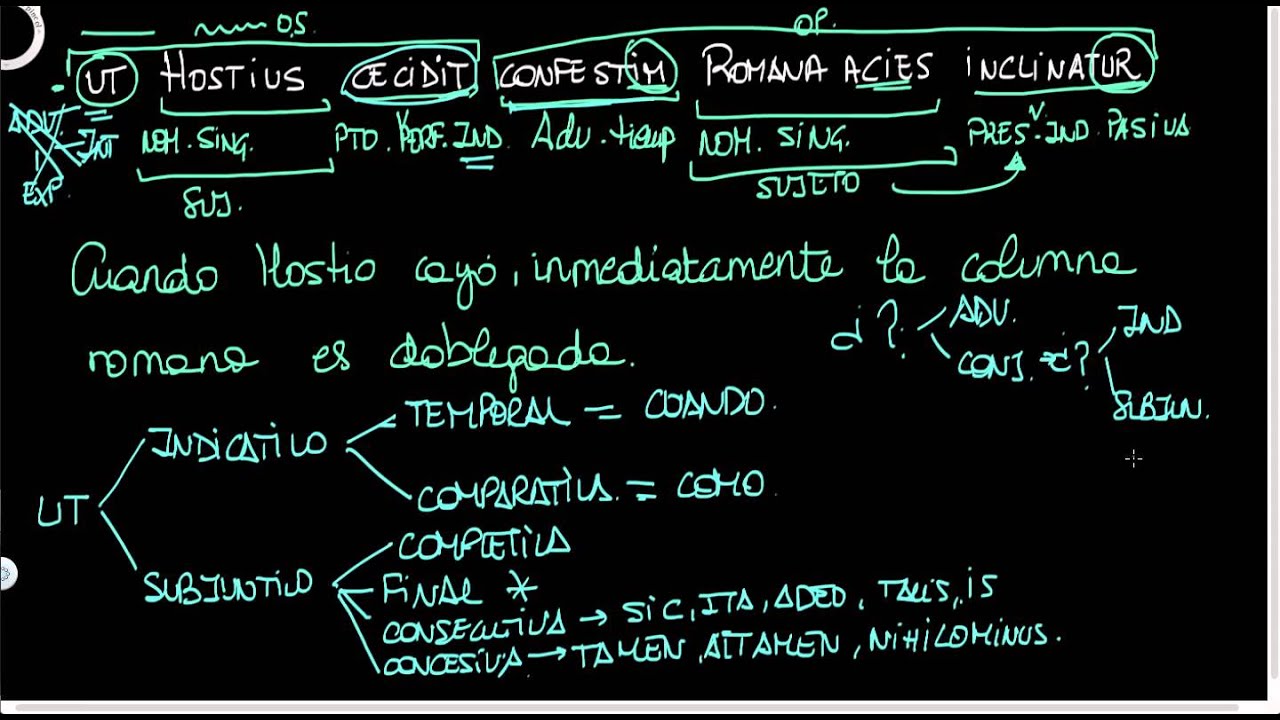 O.S. OP.
UT HOSTIUS CECIDIT CONFESTIM ROMANA ACIES INCLINATUR
ADV. INT NOM. SING. PTO. PERF. IND. Adv. tiemp NOM. SING. PRES. IND. PASIVA
V V
EXP. SUJ. SUJETO
Cuando Hostio cayó, inmediatamente la columna
romana es doblegada.
¿? ADV.
CONJ. ¿? IND
SUBJUN.
TEMPORAL = CUANDO.
INDICATIVO
COMPARATIVA = COMO.
UT
COMPLETIVA
SUBJUNTIVO
FINAL *
CONSECUTIVA → SIC, ITA, ADEO, TALIS, IS
CONCESIVA → TAMEN, ATTAMEN, NIHILOMINUS.